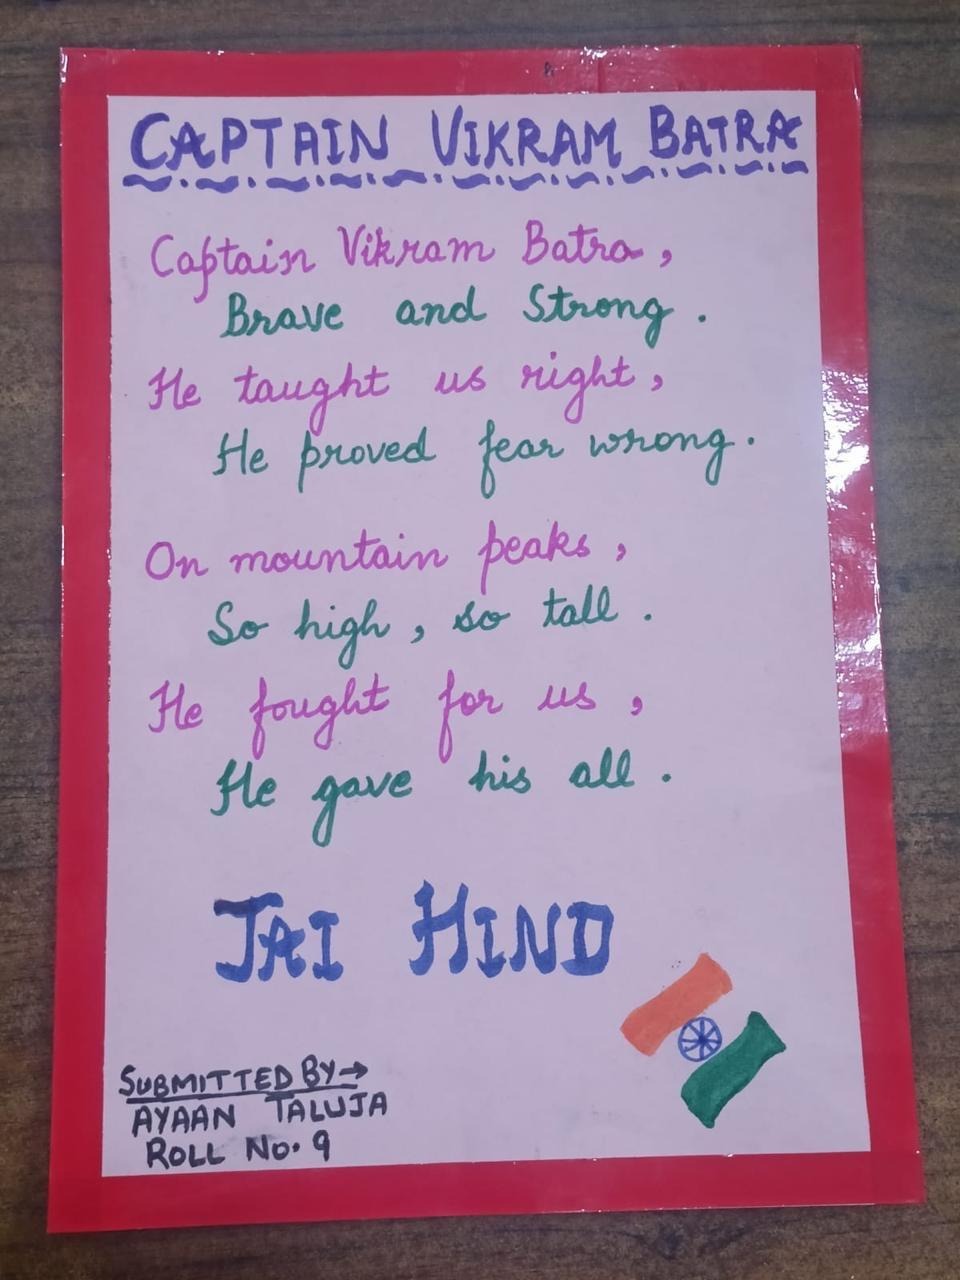 CAPTAIN VIKRAM BATRA
Captain Vikram Batra,
Brave and Strong.
He taught us right,
He proved fear wrong.
On mountain peaks,
So high, so tall.
He fought for us,
He gave his all.
JAI HIND
SUBMITTED BY→
AYAAN TALUJA
ROLL No. 9